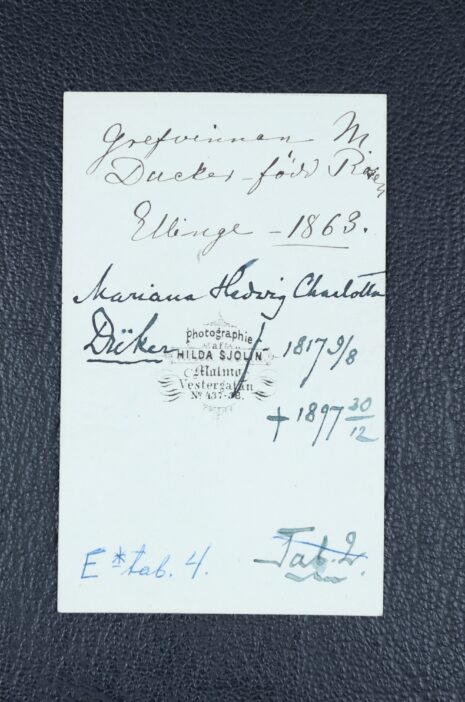 Grefvinnan M
Ducker - född Rosen
Ellinge - 1863.
Mariana Hedvig Charlotta
Düker f. 1817 9/8
photographie
af
HILDA SJOLIN
Malmo
Vestergatan
No 437-38.
+ 1897 30/12
E* tab. 4.
Tab. 2.